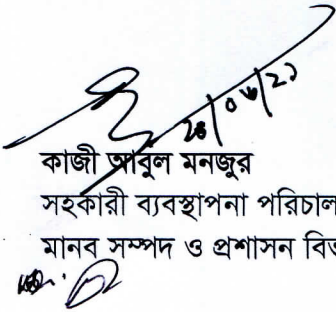 কাজী আবুল মনজুর
সহকারী ব্যবস্থাপনা পরিচাল
মানব সম্পদ ও প্রশাসন বিভ